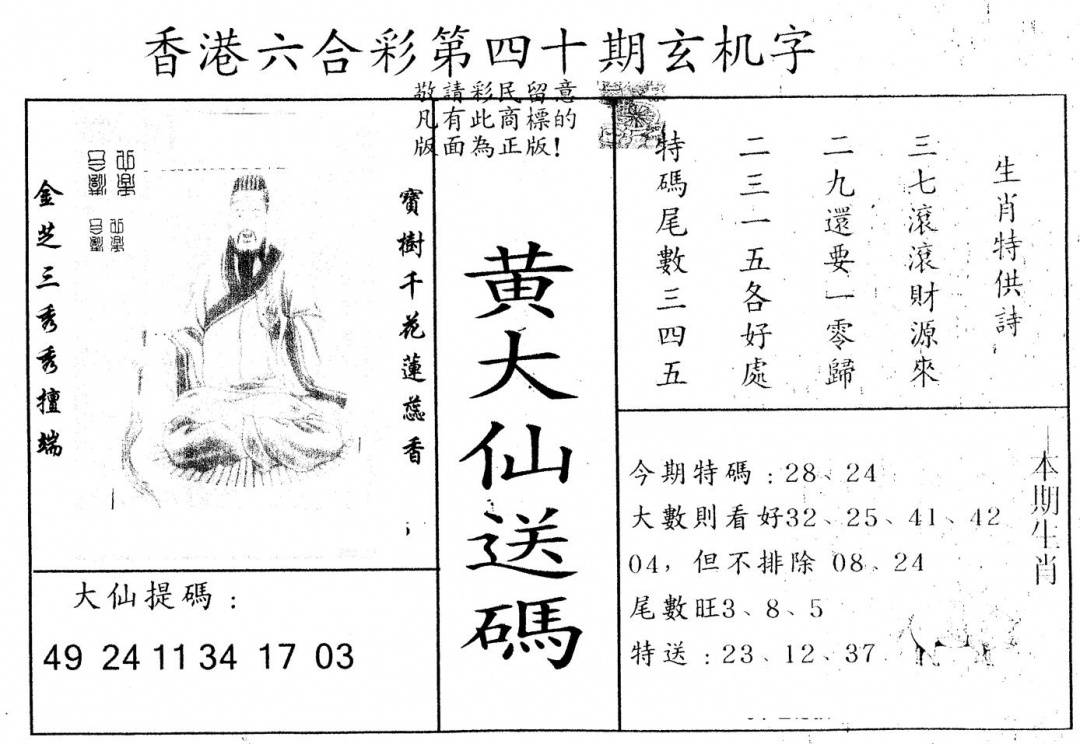 香港六合彩第四十期玄机字
敬請彩民留意
凡有此商標的
版面為正版!
金芝三秀秀擅端
寶樹千花蓮蕊香
大仙提碼：
49 24 11 34 17 03
黄大仙送碼
生肖特供詩
三七滾滾財源來
二九還要一零歸
二三一五各好處
特碼尾數三四五
本期生肖
今期特碼：28、24
大數則看好32、25、41、42
04，但不排除 08、24
尾數旺3、8、5
特送：23、12、37